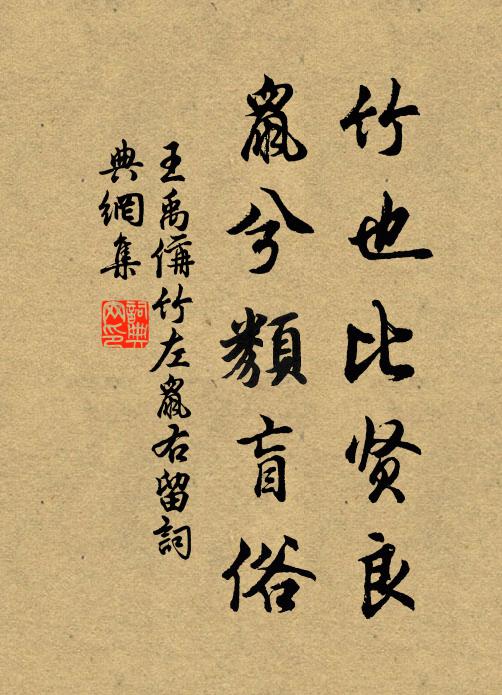 竹也比贤良
鼠兮類盲俗
王禹偁竹左鼠右留詞
典網集
詞典網印